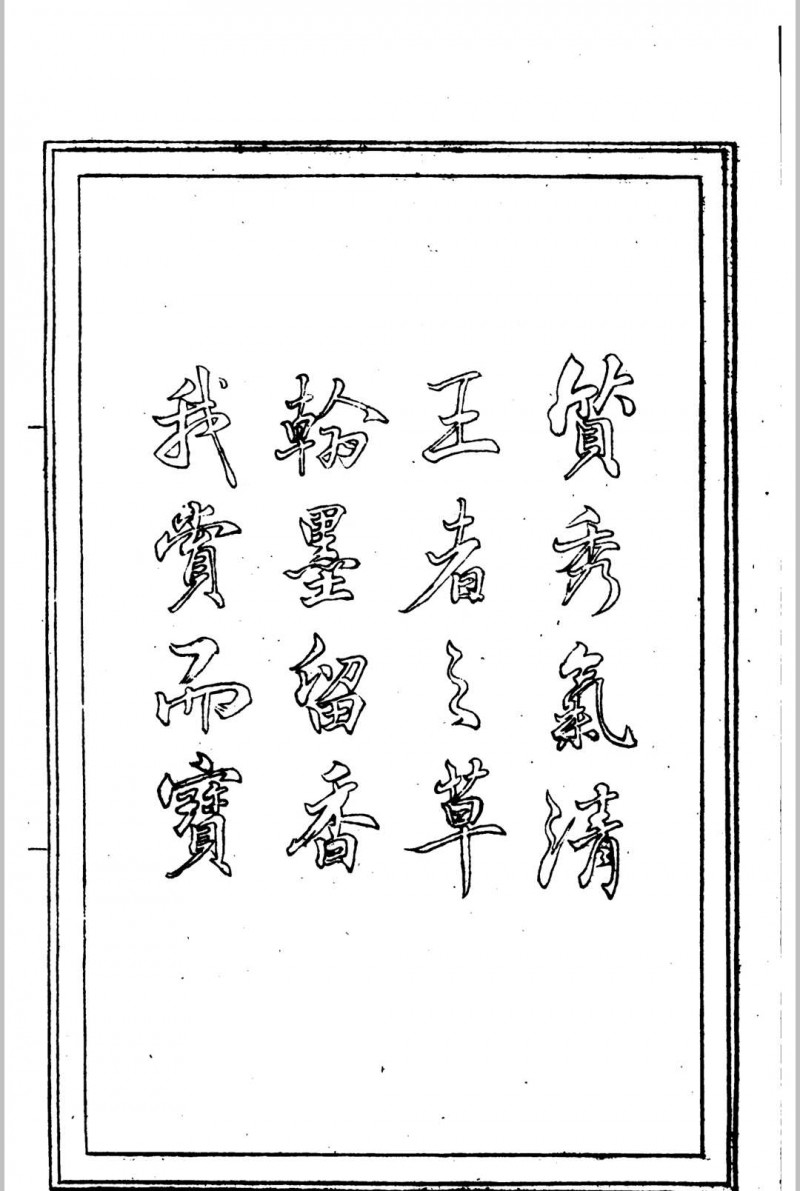 質秀氣清
王者之草
翰墨留香
我賞而寶